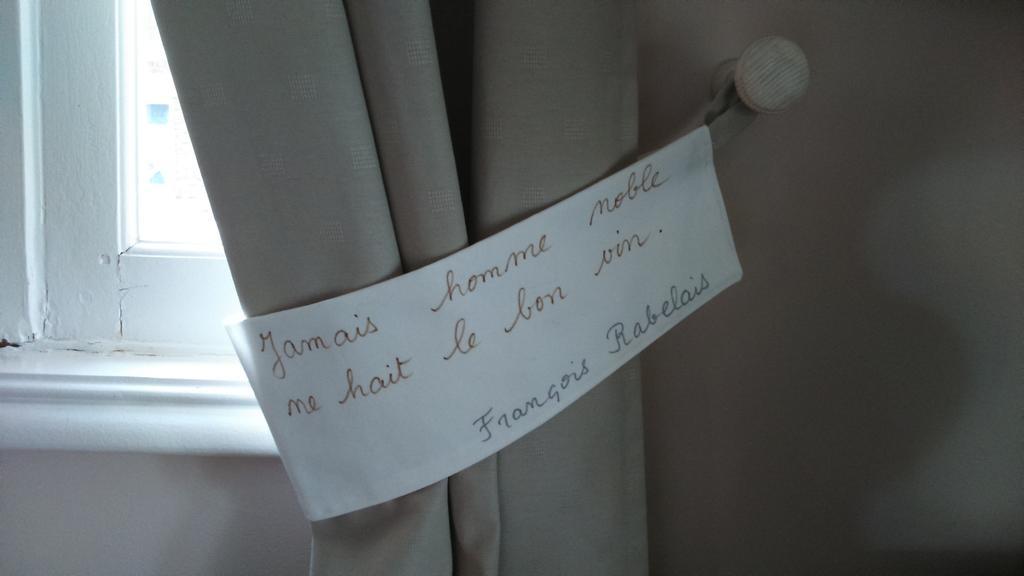 Jamais homme noble
ne hait le bon vin.
François Rabelais